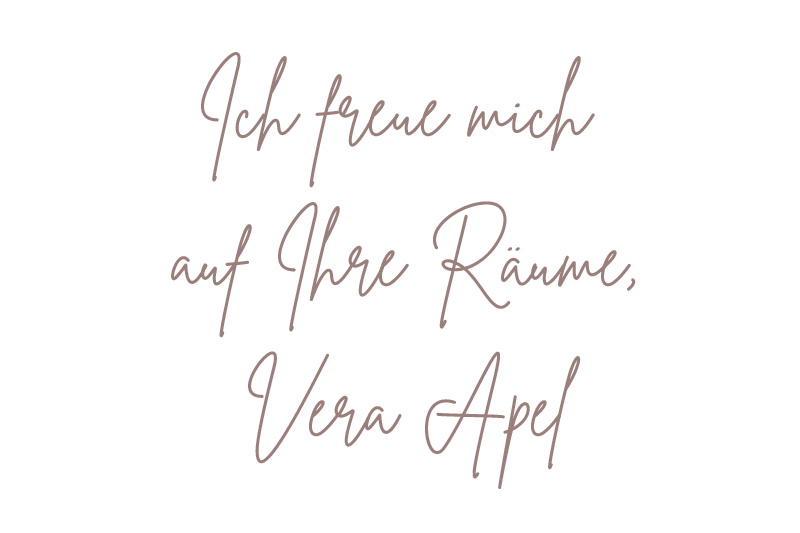 Ich freue mich
auf Ihre Räume,
Vera Apel